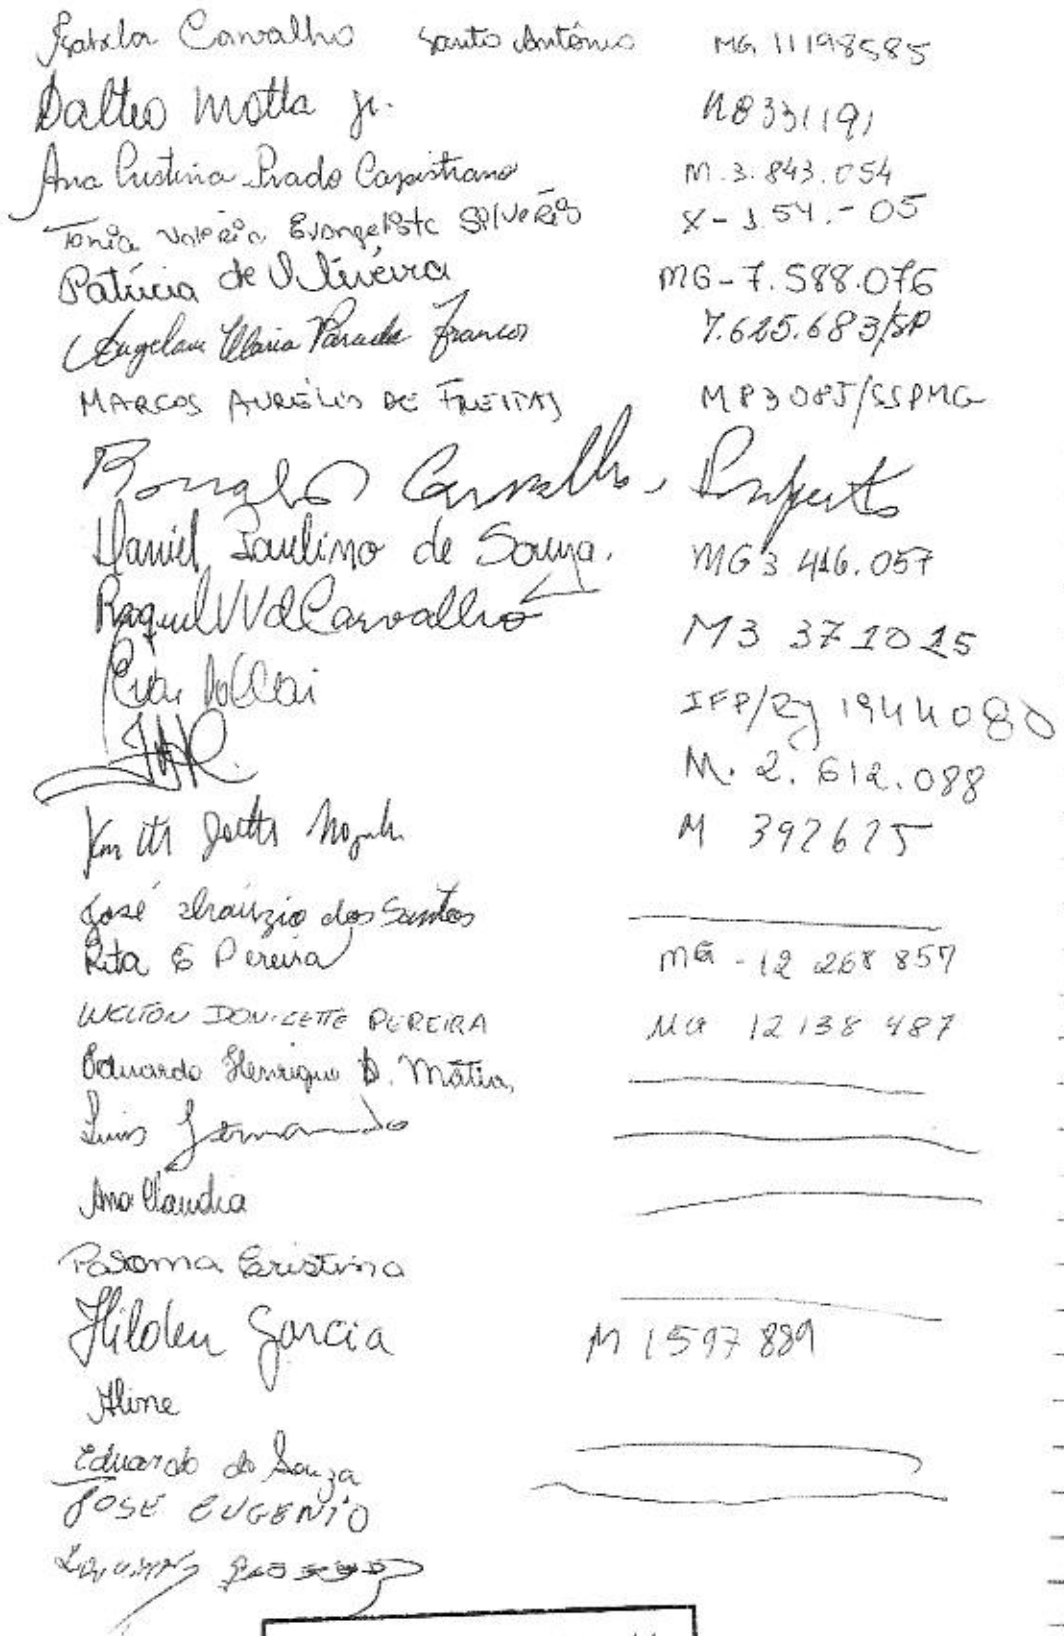 Isabela Carvalho Santo Antônio MG 11198585
Dalteo Motta Jr.
Ana Cristina Prado Capistrano M.3.843.054
Tonia Valéria Evangelista Silvério X-154.-05
Patrícia de Oliveira MG-7.588.076
Maria Parada Franco 7.625.683/SP
MARCOS AURÉLIO DE FREITAS M83085/SSPMG
Ronaldo Carvalho
Daniel Paulino de Souza. MG3.416.057
Raquel Carvalho M3 371015
IFP/RJ 1944080
M. 2. 612.088
M 392625
José dos Santos
Rita E Pereira MG-12 268 857
WELTON DONIZETTE PEREIRA MG 12138487
Eduardo Henrique D.
Luis Fernando
Ana Claudia
Paloma Cristina
Hilden Garcia M 1597889
Aline
Eduardo de Souza
JOSÉ EUGENIO